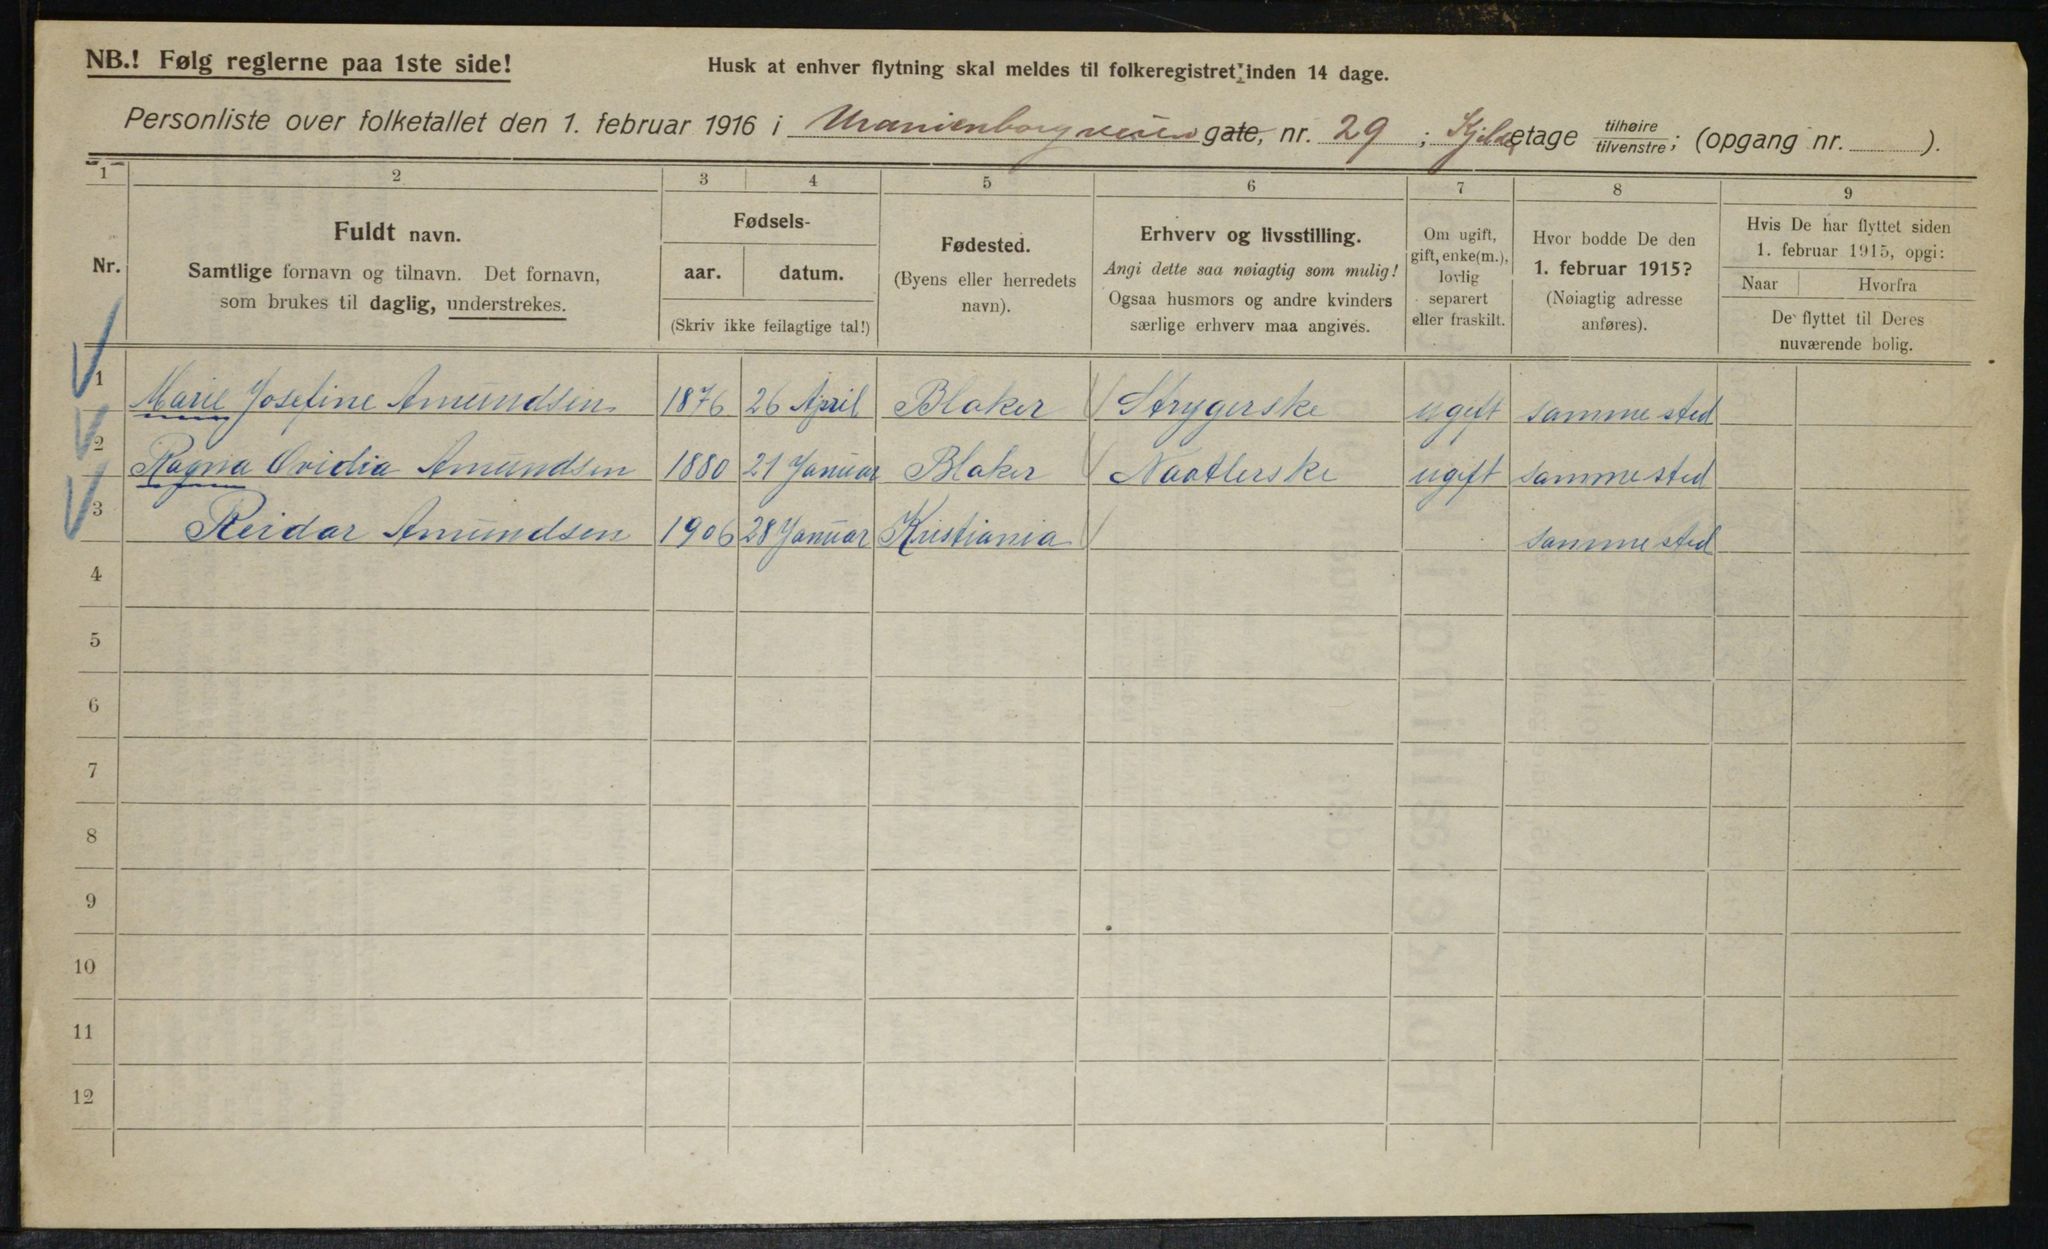 NB.! Følg reglerne paa 1ste side!
Husk at enhver flytning skal meldes til folkeregistret inden 14 dage.
Personliste over folketallet den 1. februar 1916 i Uranienborgveien gate, nr. 29 ; etage tilhøire tilvenstre; (opgang nr. ).
1 2 3 4 5 6 7 8 9
Nr.
Fuldt navn.
Samtlige fornavn og tilnavn. Det fornavn,
som brukes til daglig, understrekes.
Fødsels-
aar. datum.
(Skriv ikke feilagtige tal!)
Fødested.
(Byens eller herredets
navn).
Erhverv og livsstilling.
Angi dette saa nøiagtig som mulig!
Ogsaa husmors og andre kvinders
særlige erhverv maa angives.
Om ugift,
gift, enke(m.),
lovlig
separert
eller fraskilt.
Hvor bodde De den
1. februar 1915?
(Nøiagtig adresse
anføres).
Hvis De har flyttet siden
1. februar 1915, opgi:
Naar Hvorfra
De flyttet til Deres
nuværende bolig.
1 Marie Josefine Amundsen 1876 26 April Blaker Strygerske ugift samme sted
2 Ragna Ovidia Amundsen 1880 21 Januar Blaker Naatlerske ugift samme sted
3 Reidar Amundsen 1906 28 Januar Kristiania samme sted
4
5
6
7
8
9
10
11
12